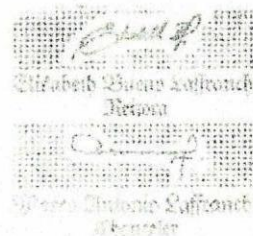 Elisabeth Bueno Laffranch
Reitora
Marco Antonio Laffranch
Chanceler